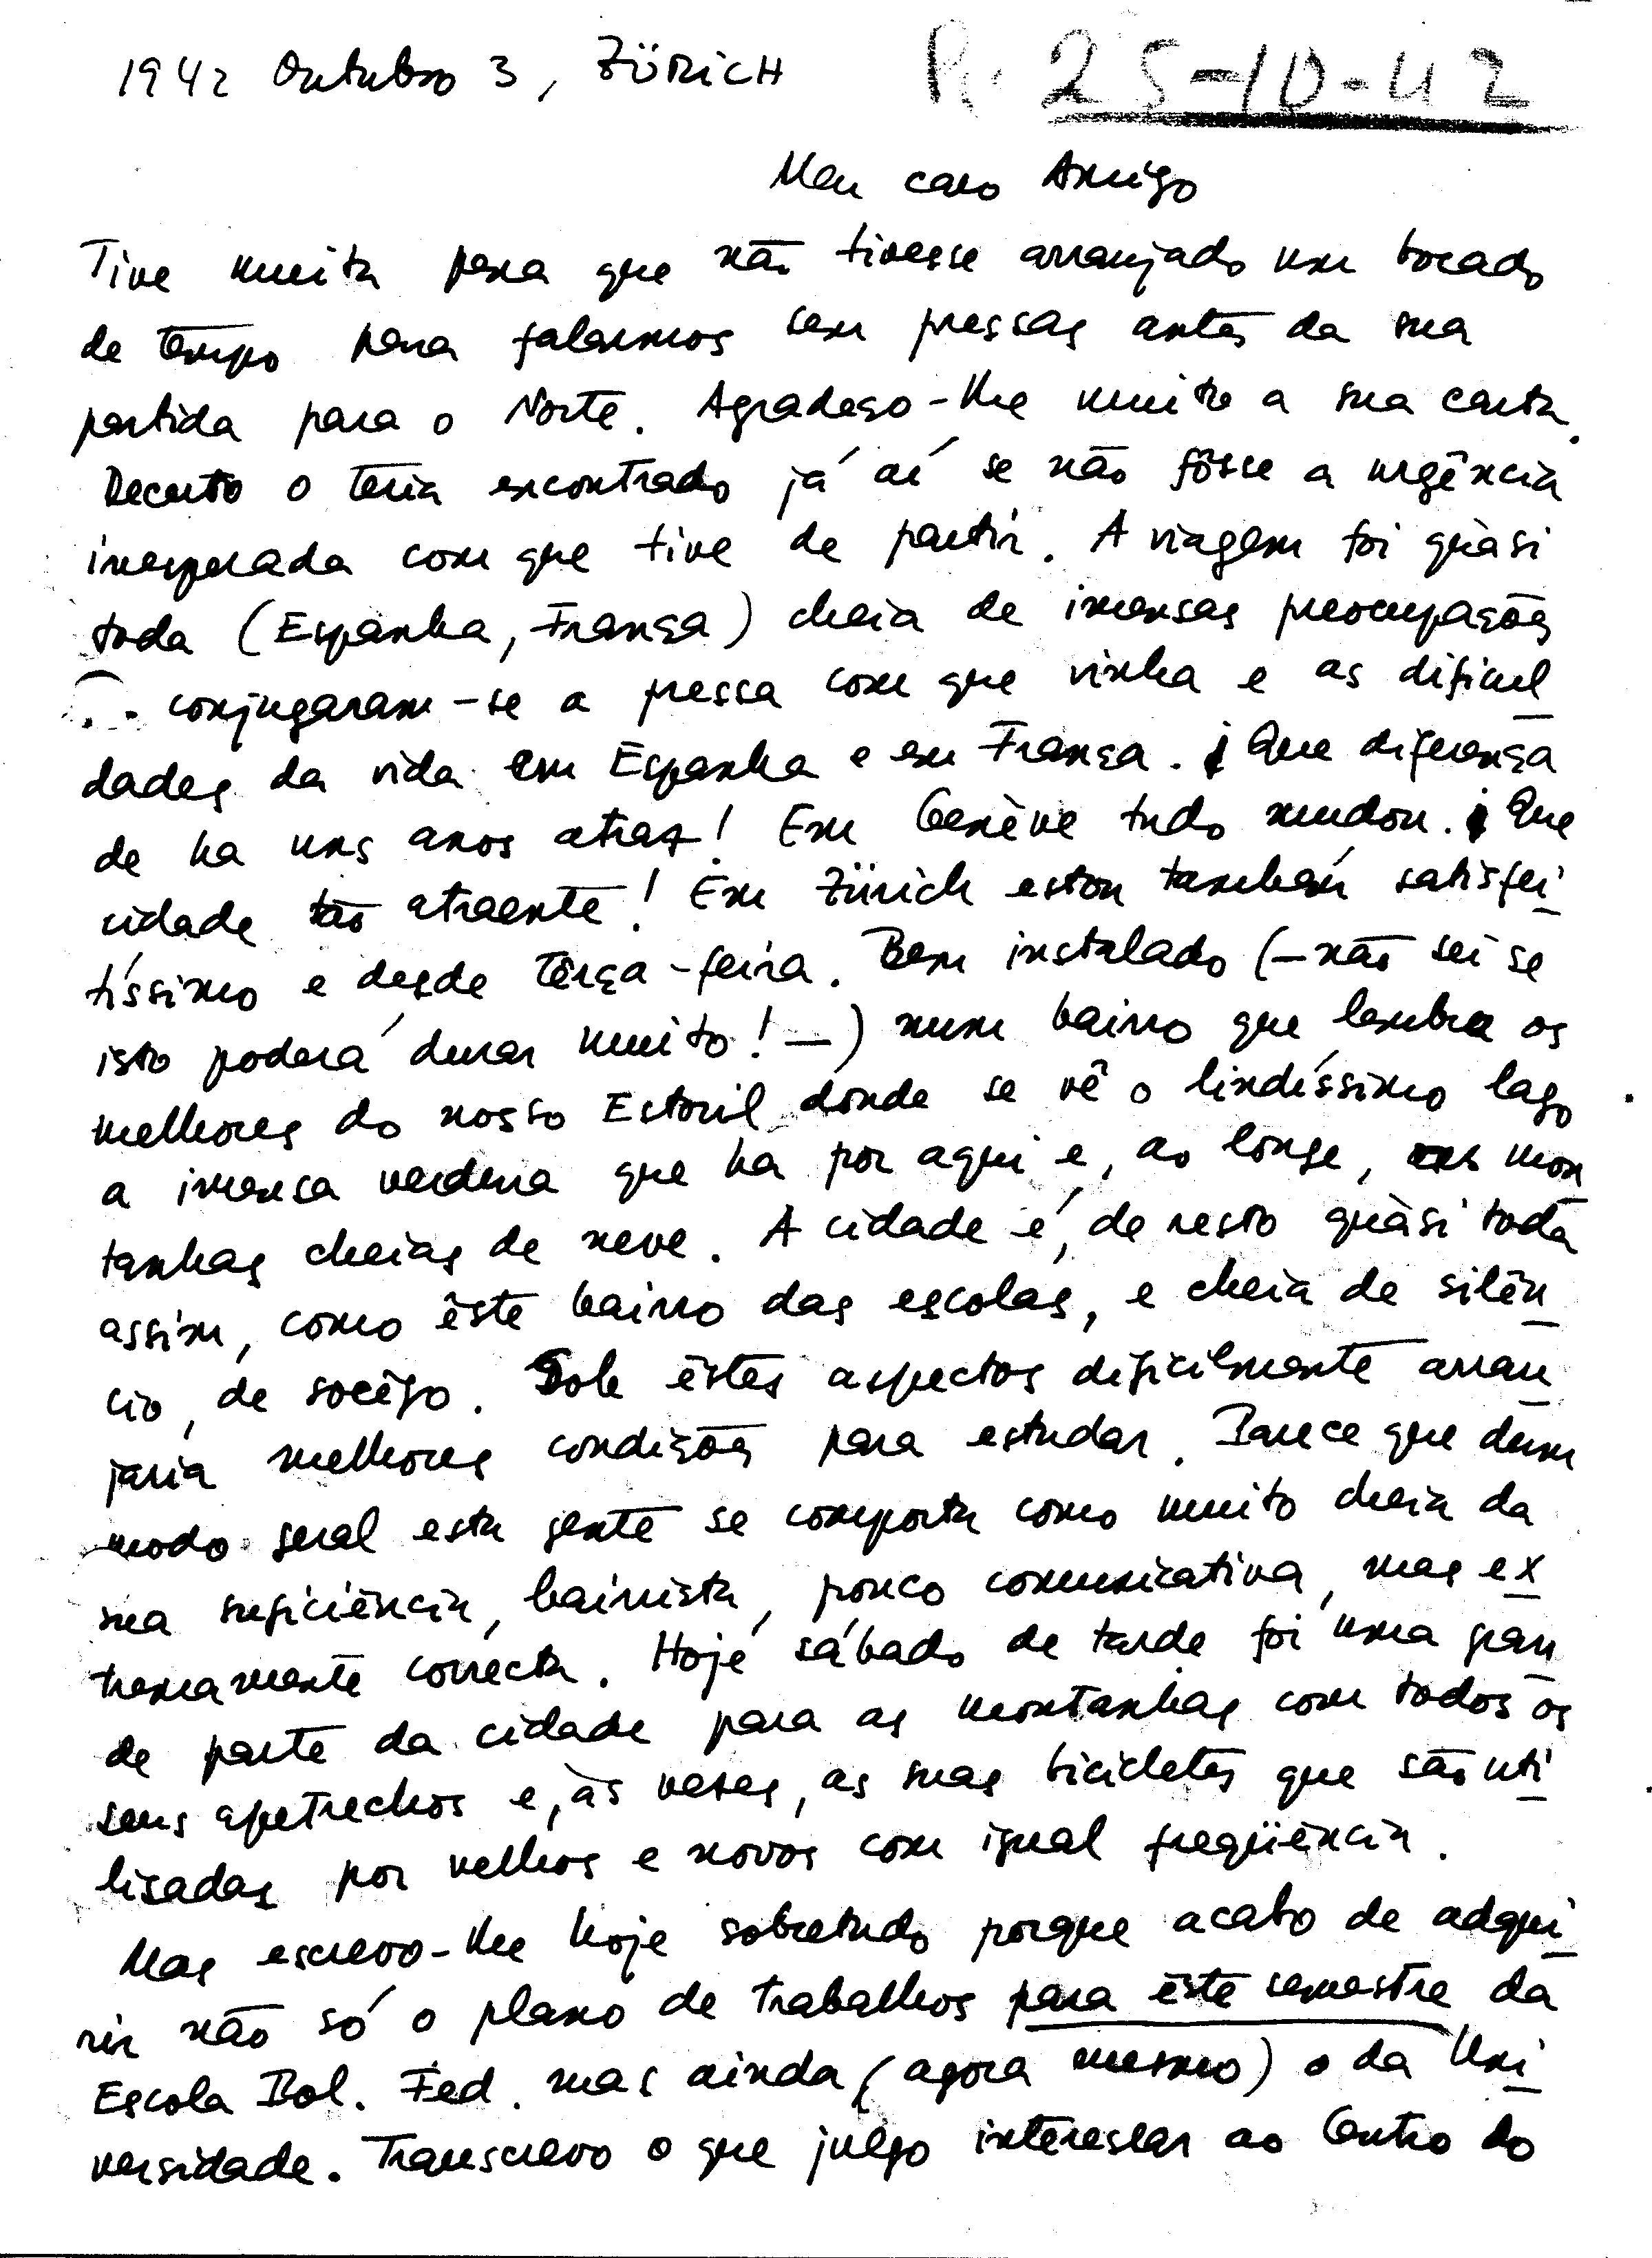 1942 Outubro 3, ZÜRICH R. 25-10-42
Meu caro Amigo
Tive muita pena que não tivesse arranjado um bocado
de tempo para falarmos sem pressas antes da sua
partida para o Norte. Agradeço-lhe muito a sua carta.
Decerto o teria encontrado já aí se não fôsse a urgência
inesperada com que tive de partir. A viagem foi quàsi
toda (Espanha, França) cheia de imensas preocupações
conjugaram-se a pressa com que vinha e as dificul
dades da vida em Espanha e em França. ¡ Que diferença
de ha uns anos atraz! Em Genève tudo mudou. ¡ Que
cidade tão atraente! Em Zürich estou também satisfei
tíssimo e desde Têrça-feira. Bem instalado (—não sei se
isto poderá durar muito! —) num bairro que lembra os
melhores do nosso Estoril donde se vê o lindíssimo lago
a imensa verdura que ha por aqui e, ao longe, as mon
tanhas cheias de neve. A cidade é, de resto quàsi toda
assim, como êste bairro das escolas, e cheia de silên
cio, de socêgo. Sob êstes aspectos dificilmente arran
jaria melhores condições para estudar. Parece que dum
modo geral esta gente se comporta como muito cheia da
sua suficiência, bairrista, pouco comunicativa, mas ex
tremamente correcta. Hoje sábado de tarde foi uma gran
de parte da cidade para as montanhas com todos os
seus apetrechos e, às vezes, as suas bicicletes que são uti
lisadas por velhos e novos com igual freqüência.
Mas escrevo-lhe hoje sobretudo porque acabo de adqui
rir não só o plano de trabalhos para êste semestre da
Escola Pol. Fed. mas ainda (agora mesmo) o da Uni
versidade. Transcrevo o que julgo interessar ao Centro do